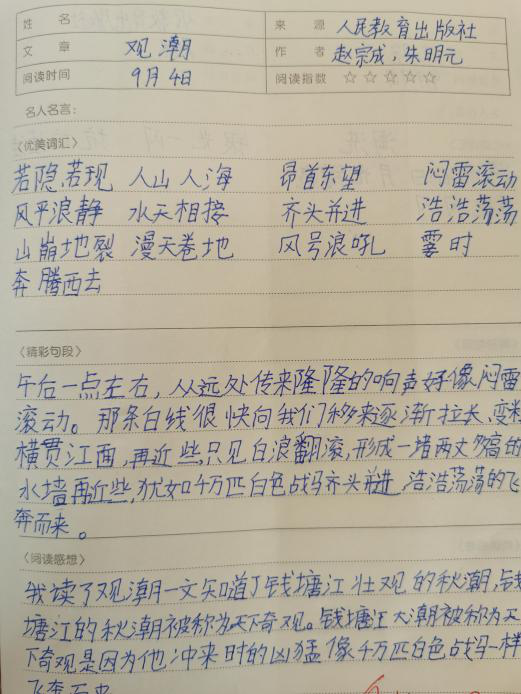 姓 名 来 源 人民教育出版社
文 章 观潮 作 者 赵宗成，朱明元
阅读时间 9月4日 阅读指数 ☆☆☆☆☆
名人名言:
〈优美词汇〉
若隐若现 人山人海 昂首东望 闷雷滚动
风平浪静 水天相接 齐头并进 浩浩荡荡
山崩地裂 漫天卷地 风号浪吼 霎时
奔腾西去
〈精彩句段〉
午后一点左右，从远处传来隆隆的响声好像闷雷
滚动。那条白线很快向我们移来逐渐拉长、变粗
横贯江面，再近些，只见白浪翻滚，形成一堵两丈多高的
水墙再近些，犹如千万匹白色战马齐头并进，浩浩荡荡的飞
奔而来。
〈阅读感想〉
我读了观潮一文知道了钱塘江壮观的秋潮，钱
塘江的秋潮被称为天下奇观。钱塘江大潮被称为天
下奇观是因为他冲来时的凶猛像千万匹白色战马一样
飞奔而来